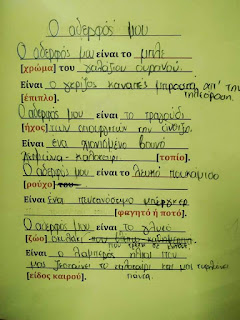 Ο αδερφός μου
Ο αδερφός μου είναι το μπλε
[χρώμα] του γαλάζιου ουρανού.
Είναι ο γκρίζος καναπές μπροστά απ' την τηλεόραση.
[έπιπλο].
Ο αδερφός μου είναι το τραγούδι
[ήχος] των σπουργιτιών την άνοιξη.
Είναι ένα χιονισμένο βουνό
χειμώνα - καλοκαίρι [τοπίο].
Ο αδερφός μου είναι το λευκό πουκάμισο
[ρούχο] του
Είναι ένα πεντανόστιμο μπέργκερ
[φαγητό ή ποτό].
Ο αδερφός μου είναι το γλυκό
[ζώο] σκυλάκι που
Είναι ο λαμπερός ήλιος που
μας ζεσταίνει το καλοκαίρι και μας τυφλώνει
[είδος καιρού]. πάντα.